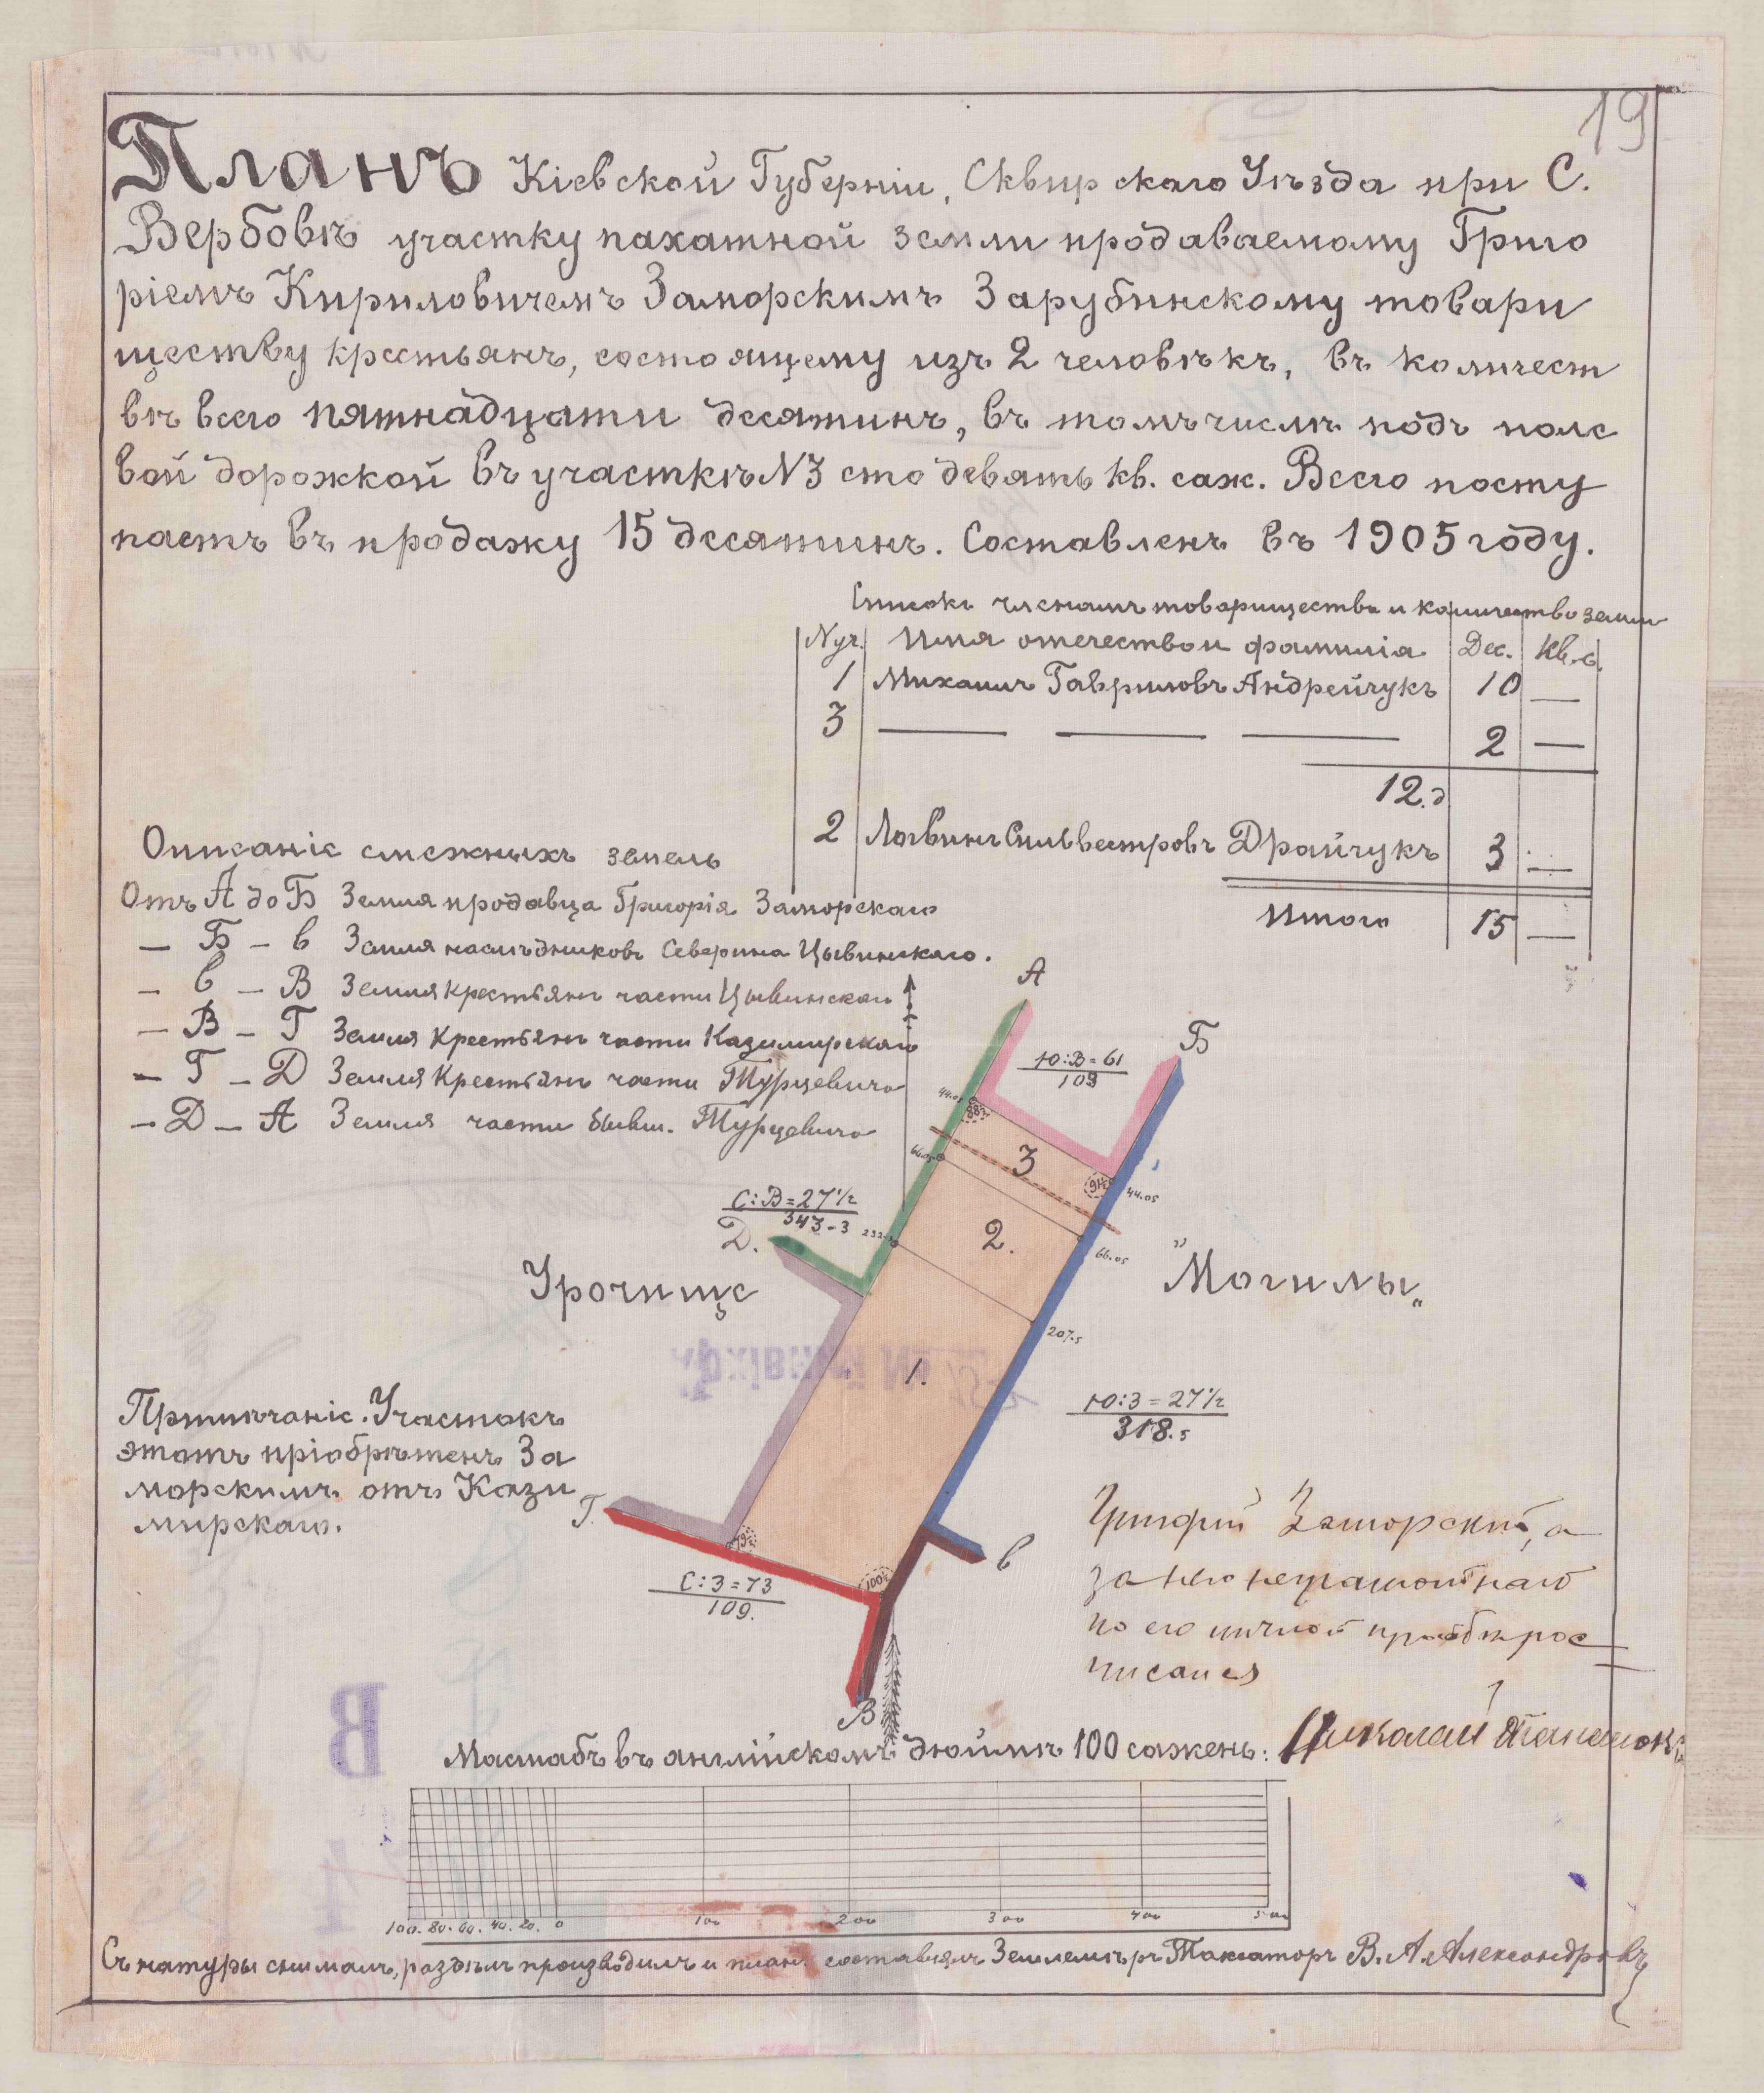 19
Планъ Кіевской Губерніи, Сквирскаго Уѣзда при С.
Вербовѣ участку пахатной земли продаваемому Григо
ріемъ Кириловичемъ Заморскимъ Зарубинскому товари
ществу крестьянъ, состоящему изъ 2 человѣкъ, въ количест
вѣ всего пятнадцати десятинъ, въ томъ числѣ подъ поле
вой дорожкой въ участкѣ N3 сто девять кв. саж. Всего посту
паетъ въ продажу 15 десятинъ. Составленъ въ 1905 году.
Списокъ членамъ товарищества и количество земли
Nуч. Имя отечество и фамилія Дес. Кв.с.
1 Михаилъ Гавриловъ Андрейчукъ 10 —
3 — — — 2 —
12.д
2 Логвинъ Сильвестровъ Драйчукъ 3 —
Итого 15 —
Описаніе смежныхъ земель
Отъ А до Б Земля продавца Григорія Заморскаго
— Б — в Земля наслѣдниковъ Северина Цывинскаго.
— в — В Земля крестьянъ части Цывинскаго
— В — Г Земля Крестьянъ части Казимирскаго
— Г — Д Земля Крестьянъ части Турцевича
— Д — А Земля части бывш. Турцевича
А
Б
Ю:В=61
109
44.05
88½
3
66.05
91½
44.05
С:В=27½
343-3
Д.
2.
66.05
Урочище
"Могилы„
207.5
1.
Архівний №
Ю:З=27½
318.5
Примѣчаніе. Участокъ
этотъ пріобрѣтенъ За
морскимъ отъ Кази
мирскаго.
Г.
79½
100½
в
С:З=73
109.
В
Григорій Заморскій, а
за него неграмотнаго
по его личной прозьбѣ рос
писался
Николай
Мастабъ въ англійскомъ дюймѣ 100 сажень:
В
1
100. 80. 60. 40. 20. 0 100 200 300 400 500
Съ натуры снималъ, раздѣлъ производилъ и планъ составлялъ Землемѣръ Таксаторъ В. А. Александровъ